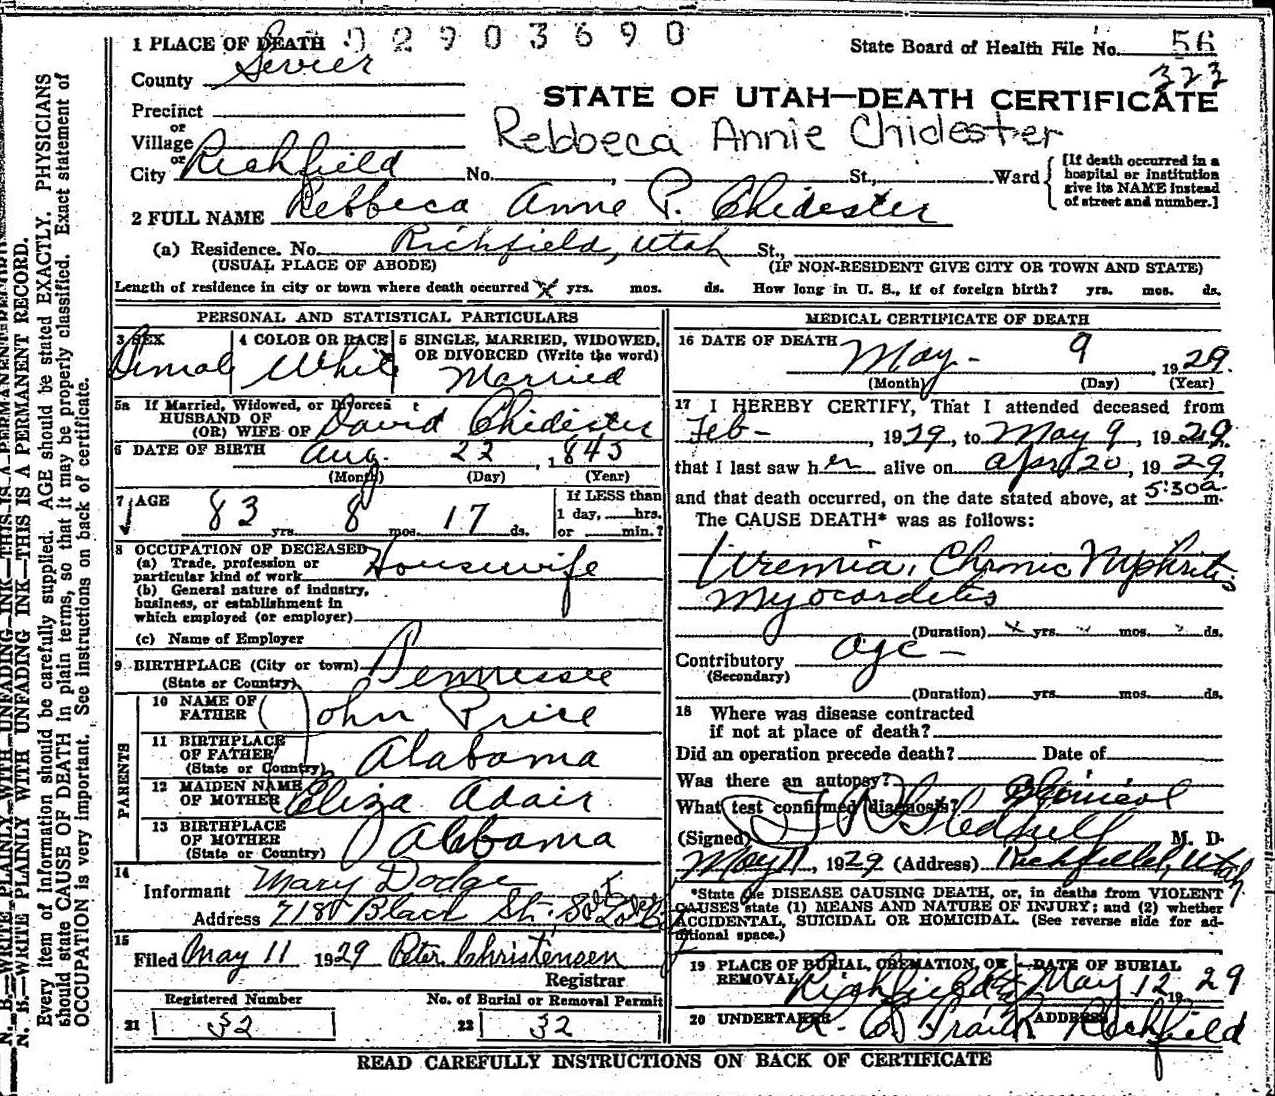 0 2 9 0 3 6 9 0
1 PLACE OF DEATH
State Board of Health File No. 56
323
County Sevier
STATE OF UTAH—DEATH CERTIFICATE
Precinct
or
Village
Rebbeca Annie Chidester
or
City Richfield No. , St., Ward
[If death occurred in a
hospital or institution
give its NAME instead
of street and number.]
2 FULL NAME Rebbeca Anne P. Chidester
(a) Residence. No. Richfield, Utah St.,
(USUAL PLACE OF ABODE) (IF NON-RESIDENT GIVE CITY OR TOWN AND STATE)
Length of residence in city or town where death occurred yrs. mos. ds. How long in U. S., if of foreign birth? yrs. mos. ds.
PERSONAL AND STATISTICAL PARTICULARS
3 SEX Femal
4 COLOR OR RACE White
5 SINGLE, MARRIED, WIDOWED,
OR DIVORCED (Write the word)
Married
5a If Married, Widowed, or Divorced
HUSBAND OF
(OR) WIFE OF David Chidester
6 DATE OF BIRTH Aug. 22, 1845
(Month) (Day) (Year)
7 AGE 83 yrs. 8 mos. 17 ds.
If LESS than
1 day, hrs.
or min.?
8 OCCUPATION OF DECEASED
(a) Trade, profession or
particular kind of work Housewife
(b) General nature of industry,
business, or establishment in
which employed (or employer)
(c) Name of Employer
9 BIRTHPLACE (City or town)
(State or Country) Tennessee
PARENTS
10 NAME OF
FATHER John Price
11 BIRTHPLACE
OF FATHER
(State or Country) Alabama
12 MAIDEN NAME
OF MOTHER Eliza Adair
13 BIRTHPLACE
OF MOTHER
(State or Country) Alabama
14
Informant Mary Dodge
Address 718 Black St.
15
Filed May 11 1929 Peter Christensen
Registrar
Registered Number
21 32
No. of Burial or Removal Permit
22 32
MEDICAL CERTIFICATE OF DEATH
16 DATE OF DEATH May - 9 1929.
(Month) (Day) (Year)
17 I HEREBY CERTIFY, That I attended deceased from
Feb - , 1929, to May 9, 1929.
that I last saw her alive on Apr 20, 1929,
and that death occurred, on the date stated above, at 5:30 a m.
The CAUSE DEATH* was as follows:
Uremia, Chronic Nephritis
Myocarditis
(Duration) yrs. mos. ds.
Contributory age -
(Secondary)
(Duration) yrs. mos. ds.
18 Where was disease contracted
if not at place of death?
Did an operation precede death? Date of
Was there an autopsy?
What test confirmed diagnosis? Clinical
(Signed) M. D.
May 11, 1929 (Address) Richfield, Utah
*State the DISEASE CAUSING DEATH, or, in deaths from VIOLENT
CAUSES state (1) MEANS AND NATURE OF INJURY; and (2) whether
ACCIDENTAL, SUICIDAL OR HOMICIDAL. (See reverse side for ad-
ditional space.)
19 PLACE OF BURIAL, CREMATION, OR
REMOVAL Richfield
DATE OF BURIAL
May 12 1929
20 UNDERTAKER
ADDRESS Richfield
READ CAREFULLY INSTRUCTIONS ON BACK OF CERTIFICATE
N. B.—WRITE PLAINLY WITH UNFADING INK—THIS IS A PERMANENT RECORD.
Every item of information should be carefully supplied. AGE should be stated EXACTLY. PHYSICIANS
should state CAUSE OF DEATH in plain terms, so that it may be properly classified. Exact statement of
OCCUPATION is very important. See instructions on back of certificate.